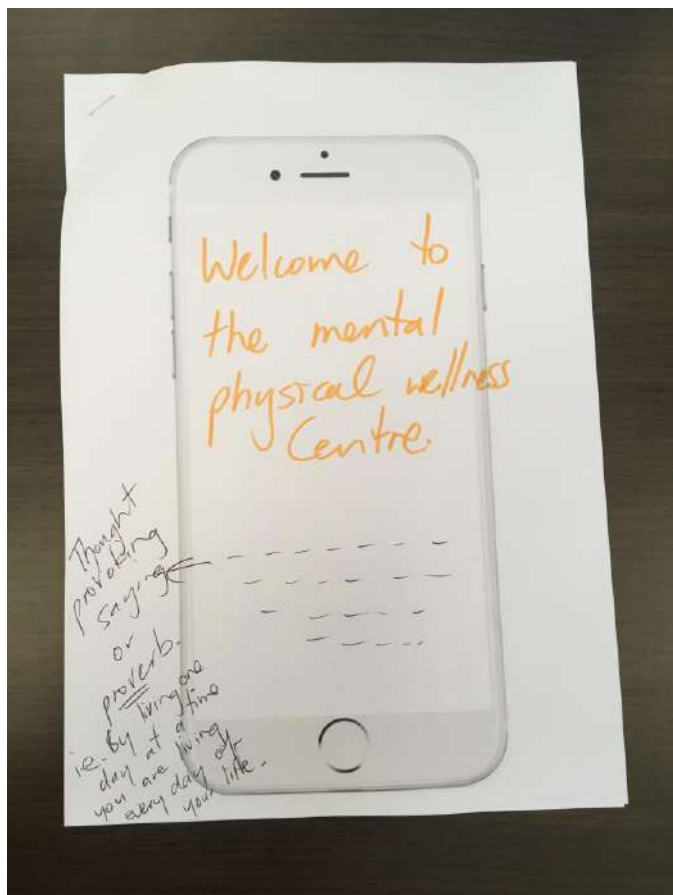 Welcome to
the mental
physical wellness
Centre.
Thought
provoking
saying
or
proverb.
ie. By living one
day at a time
you are living
every day of
your life.